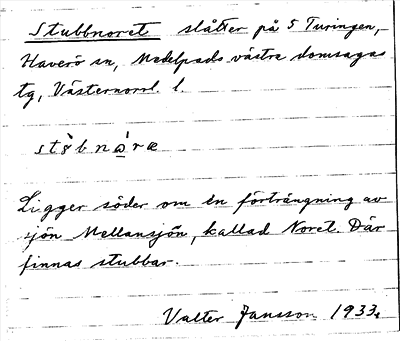 Stubbnoret slåtter på S Turingen,
Haverö sn, Medelpads västra domsagas
tg, Västernorrl. l.
Ligger söder om en förträngning av
sjön Mellansjön, kallad Noret. Där
finnas stubbar.
Valter Jansson 1933.